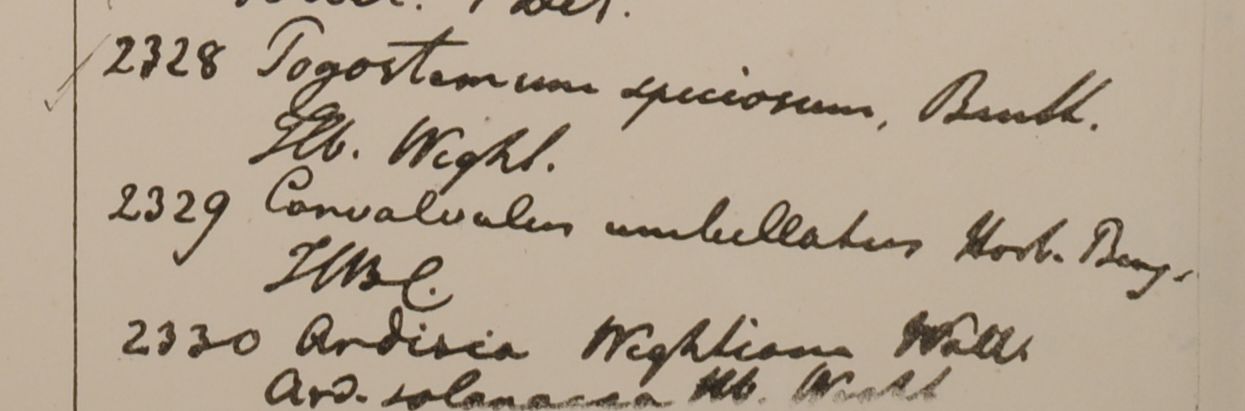 2328 Pogostemum speciosum, Benth.
Hb. Wight.
2329 Convolvulus umbellatus Herb. Beng.
HBC.
2330 Ardisia Wightiana Wall.
Ard. solanacea Hb. Wight